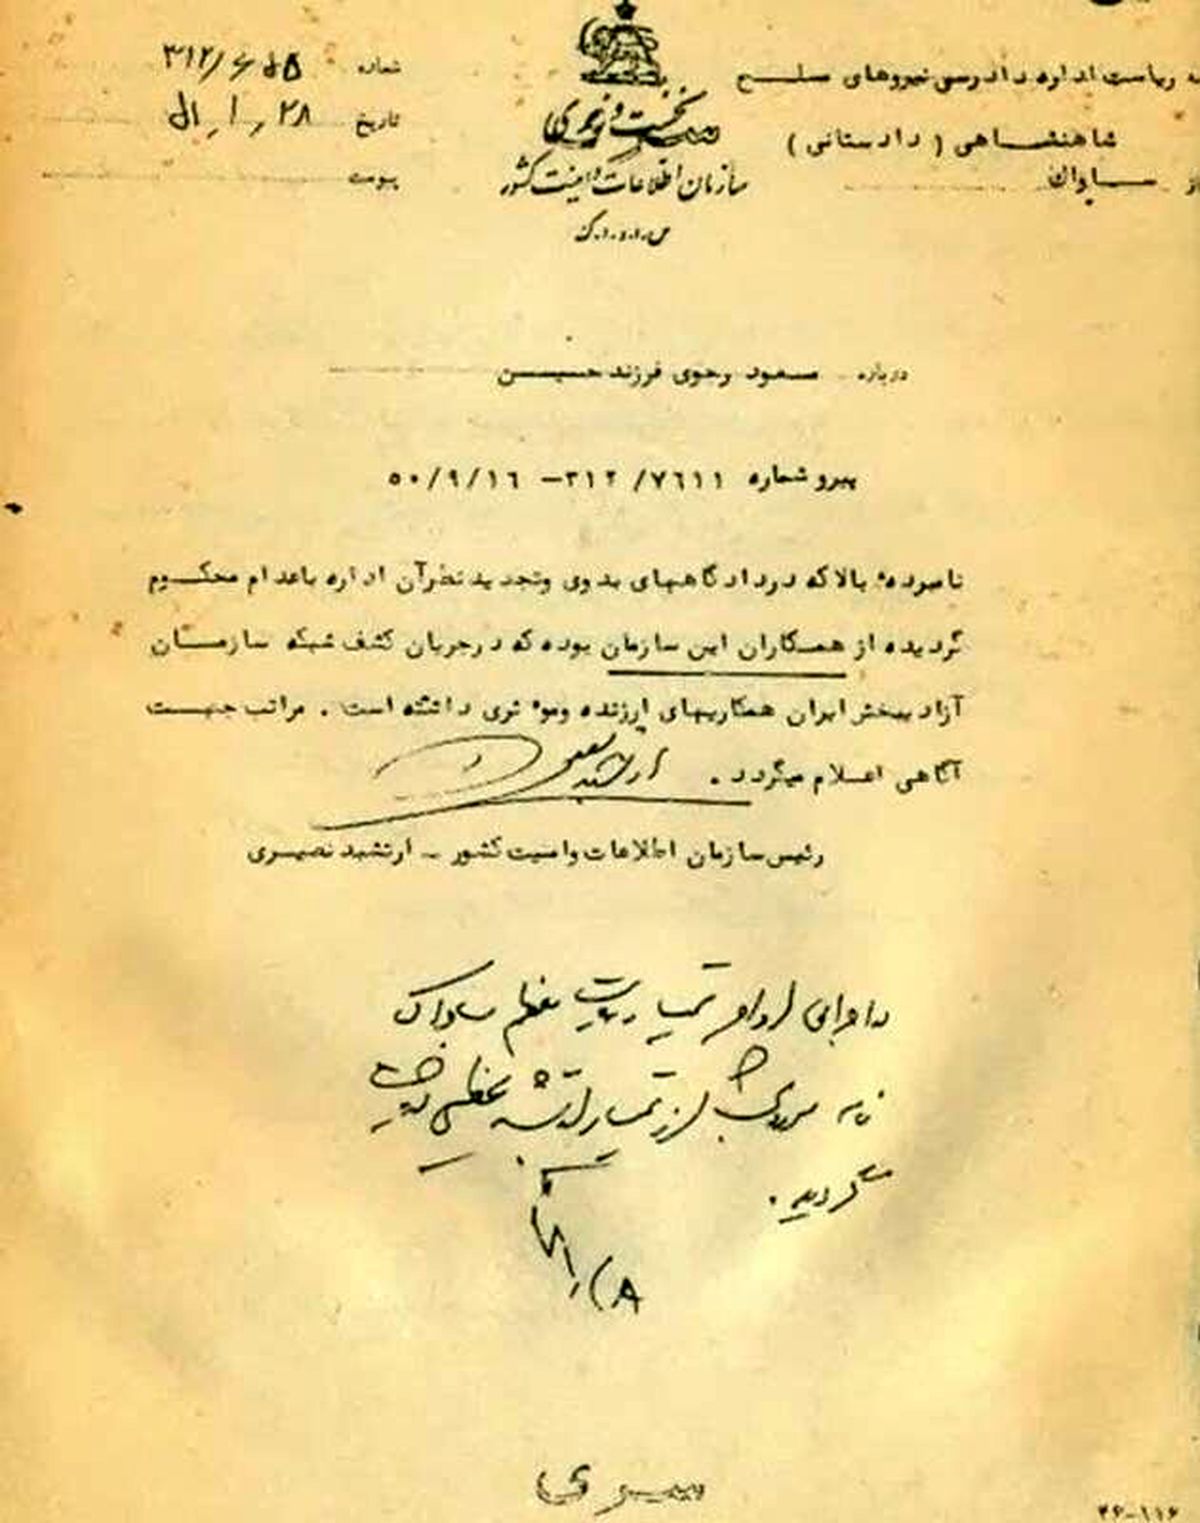 به ریاست اداره دادرسی نیروهای مسلح
شاهنشاهی ( دادستانی )
از ساواک
نخست وزیری
سازمان اطلاعات و امنیت کشور
س.ا.و.ا.ک
شماره ۳۱۲/
تاریخ ۵۱.۱.۲۸
پیوست
درباره مسعود رجوی فرزند حسین
پیرو شماره ۷۶۱۱/ ۳۱۲– ۵۰/۹/۱۶
نامبرده بالا که در دادگاههای بدوی وتجدید نظر آن اداره باعدام محکوم
گردیده از همکاران این سازمان بوده که در جریان کشف شبکه سازمان
آزادیبخش ایران همکاریهای ارزنده وموثری داشته است . مراتب جهت
آگاهی اعلام میگردد . ارتشبد نصیری
رئیس سازمان اطلاعات وامنیت کشور – ارتشبد نصیری
اوامر تیمسار ریاست معظم ساواک
نامه از تیمسار معظم
گردید .
سری
۳۶-۱۱۶